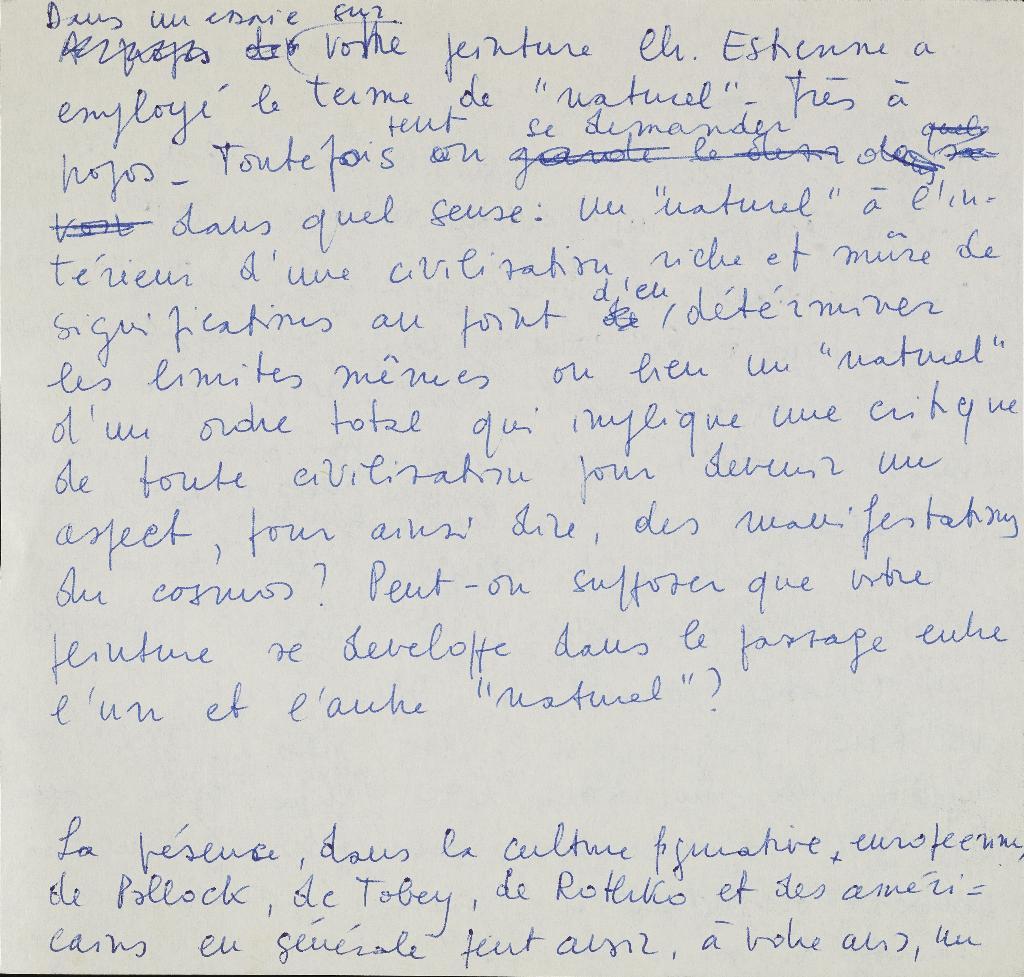 Dans un essaie sur
votre peinture Ch. Estienne a
employé le terme de "naturel" - Très à
peut se demander
propos - Toutefois on
dans quel sense: un "naturel" à l'in-
térieur d'une civilisation, riche et mûre de
d'en
significations au point détérminer
les limites mêmes ou bien un "naturel"
d'un ordre total qui implique une critique
de toute civilisation pour devenir un
aspect, pour ainsi dire, des manifestations
du cosmos? Peut-on supposer que votre
peinture se developpe dans le passage entre
l'un et l'autre "naturel"?
La présence, dans la culture figurative européenne,
de Pollock, de Tobey, de Rothko et des améri=
cains en générale peut avoir, à votre avis, un